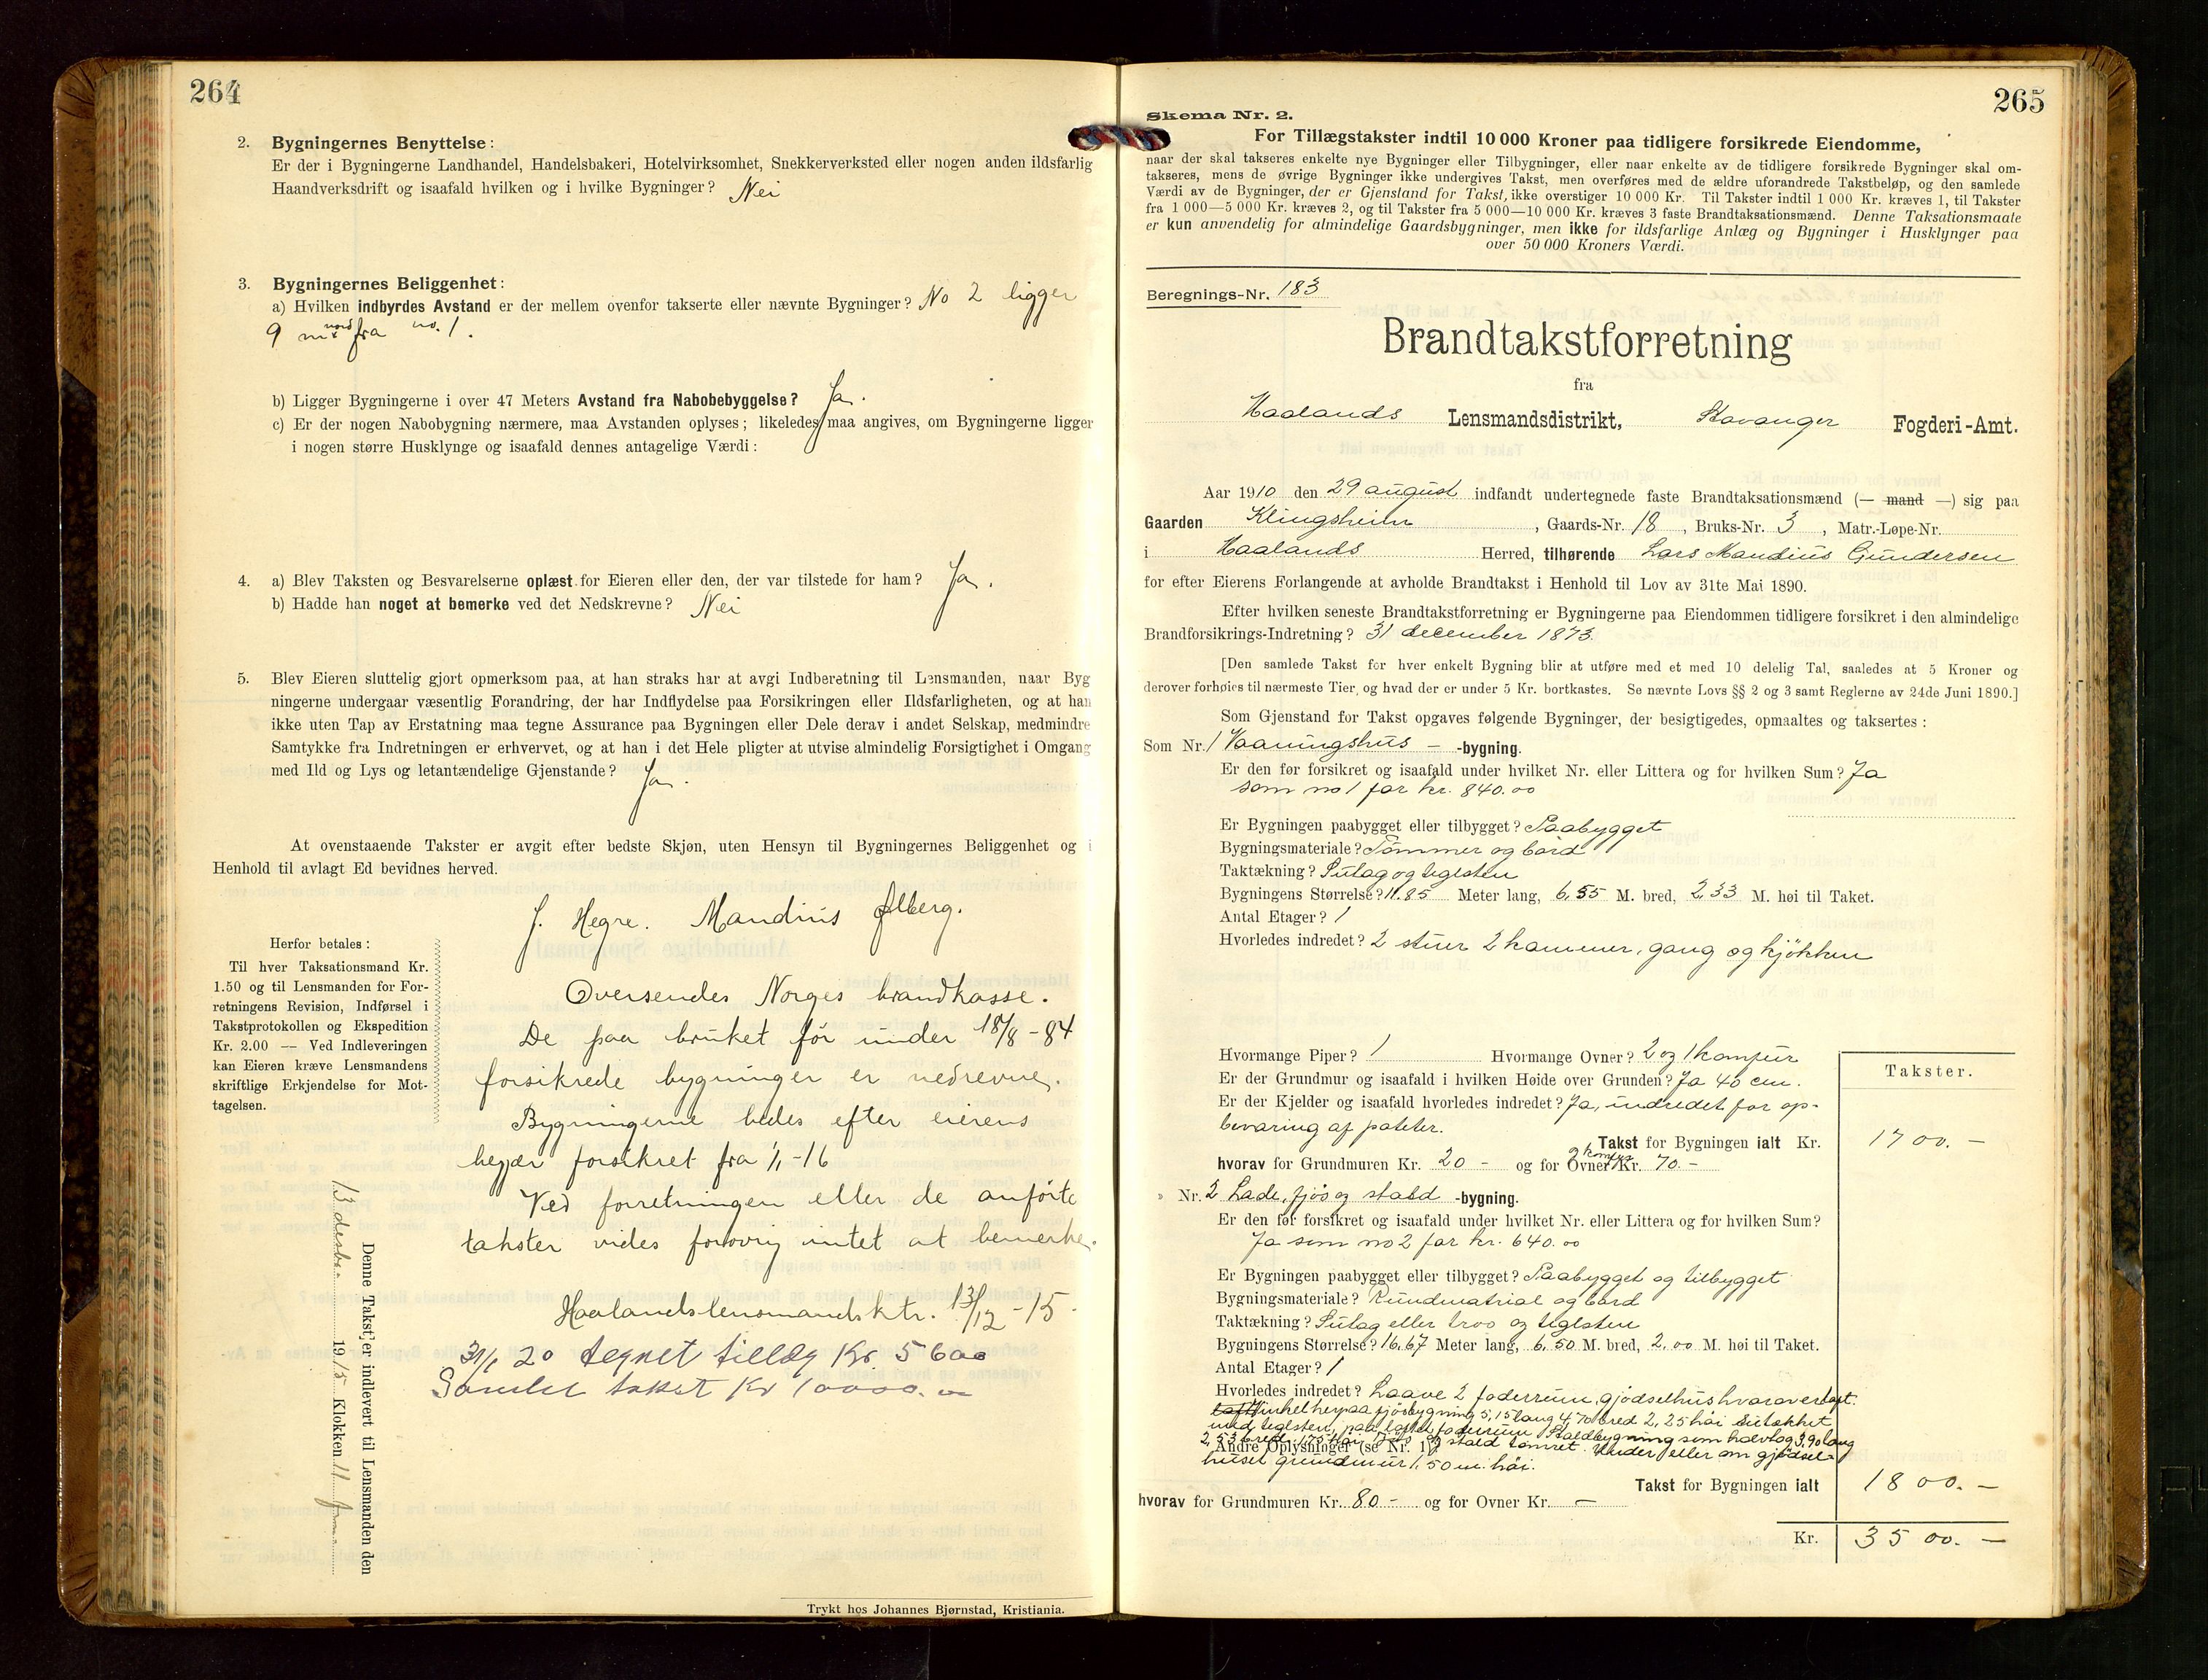 264
2. Bygningernes Benyttelse:
Er der i Bygningerne Landhandel, Handelsbakeri, Hotelvirksomhet, Snekkerverksted eller nogen anden ildsfarlig
Haandverksdrift og isaafald hvilken og i hvilke Bygninger? Nei
3. Bygningernes Beliggenhet:
a) Hvilken indbyrdes Avstand er der mellem ovenfor takserte eller nævnte Bygninger? No 2 ligger
9 m nord fra no. 1.
b) Ligger Bygningerne i over 47 Meters Avstand fra Nabobebyggelse? Ja.
c) Er der nogen Nabobygning nærmere, maa Avstanden oplyses; likeledes maa angives, om Bygningerne ligger
i nogen større Husklynge og isaafald dennes antagelige Værdi:
4. a) Blev Taksten og Besvarelserne oplæst for Eieren eller den, der var tilstede for ham? Ja.
b) Hadde han noget at bemerke ved det Nedskrevne? Nei
5. Blev Eieren sluttelig gjort opmerksom paa, at han straks har at avgi Indberetning til Lensmanden, naar Byg
ningerne undergaar væsentlig Forandring, der har Indflydelse paa Forsikringen eller Ildsfarligheten, og at han
ikke uten Tap av Erstatning maa tegne Assurance paa Bygningen eller Dele derav i andet Selskap, medmindre
Samtykke fra Indretningen er erhvervet, og at han i det Hele pligter at utvise almindelig Forsigtighet i Omgang
med Ild og Lys og letantændelige Gjenstande? Ja.
At ovenstaaende Takster er avgit efter bedste Skjøn, uten Hensyn til Bygningernes Beliggenhet og i
Henhold til avlagt Ed bevidnes herved.
J. Hegre. Mandius Ølberg.
Herfor betales:
Til hver Taksationsmand Kr.
1.50 og til Lensmanden for For-
retningens Revision, Indførsel i
Takstprotokollen og Ekspedition
Kr. 2.00 — Ved Indleveringen
kan Eieren kræve Lensmandens
skriftlige Erkjendelse for Mot-
tagelsen.
Oversendes Norges brandkasse.
De paa bruket før under 18/8 - 84
forsikrede bygninger er nedrevne.
Bygningerne bedes efter eierens
begjær forsikret fra 1/1 - 16
Ved forretningen eller de anførte
takster vides forøvrig intet at bemerke.
Haalandslensmandsktr. 13/12 - 15.
31/1 20 tegnet tillæg Kr. 5600
Samlet takst Kr 10000.00
Denne Takst er indlevert til Lensmanden den
13 desbr. 1915 Klokken 11 form.
Trykt hos Johannes Bjørnstad, Kristiania.
265
Skema Nr. 2.
For Tillægstakster indtil 10 000 Kroner paa tidligere forsikrede Eiendomme,
naar der skal takseres enkelte nye Bygninger eller Tilbygninger, eller naar enkelte av de tidligere forsikrede Bygninger skal om-
takseres, mens de øvrige Bygninger ikke undergives Takst, men overføres med de ældre uforandrede Takstbeløp, og den samlede
Værdi av de Bygninger, der er Gjenstand for Takst, ikke overstiger 10 000 Kr. Til Takster indtil 1 000 Kr. kræves 1, til Takster
fra 1 000—5 000 Kr. kræves 2, og til Takster fra 5 000—10 000 Kr. kræves 3 faste Brandtaksationsmænd. Denne Taksationsmaate
er kun anvendelig for almindelige Gaardsbygninger, men ikke for ildsfarlige Anlæg og Bygninger i Husklynger paa
over 50 000 Kroners Værdi.
Beregnings-Nr. 183
Brandtakstforretning
fra
Haalands Lensmandsdistrikt, Stavanger Fogderi-Amt.
Aar 1910 den 29 august indfandt undertegnede faste Brandtaksationsmænd (— mand —) sig paa
Gaarden Klingsheim, Gaards-Nr. 18, Bruks-Nr. 3, Matr.-Løpe-Nr.
i Haalands Herred, tilhørende Lars Mandius Gundersen
for efter Eierens Forlangende at avholde Brandtakst i Henhold til Lov av 31te Mai 1890.
Efter hvilken seneste Brandtakstforretning er Bygningerne paa Eiendommen tidligere forsikret i den almindelige
Brandforsikrings-Indretning? 31 december 1873.
[Den samlede Takst for hver enkelt Bygning blir at utføre med et med 10 delelig Tal, saaledes at 5 Kroner og
derover forhøies til nærmeste Tier, og hvad der er under 5 Kr. bortkastes. Se nævnte Lovs §§ 2 og 3 samt Reglerne av 24de Juni 1890.]
Som Gjenstand for Takst opgaves følgende Bygninger, der besigtigedes, opmaaltes og taksertes:
Som Nr. 1 Vaaningshus -bygning.
Er den før forsikret og isaafald under hvilket Nr. eller Littera og for hvilken Sum? Ja
som no 1 for kr. 840.00
Er Bygningen paabygget eller tilbygget? Paabygget
Bygningsmateriale? Tømmer og bord
Taktækning? Sutag og teglsten
Bygningens Størrelse? 11.85 Meter lang, 6,55 M. bred, 2,33 M. høi til Taket.
Antal Etager? 1
Hvorledes indredet? 2 stuer 2 kammer, gang og kjøkken
Hvormange Piper? 1 Hvormange Ovner? 2 og 1 komfur
Er der Grundmur og isaafald i hvilken Høide over Grunden? Ja 40 cm.
Er der Kjelder og isaafald hvorledes indredet? Ja, indredet for op-
bevaring af poteter.
Takster.
Takst for Bygningen ialt Kr. 1700.-
hvorav for Grundmuren Kr. 20 - og for Ovner Kr. 70.-
Nr. 2 Lade, fjøs og stald -bygning.
Er den før forsikret og isaafald under hvilket Nr. eller Littera og for hvilken Sum?
Ja som no 2 for kr. 640.00
Er Bygningen paabygget eller tilbygget? Paabygget og tilbygget
Bygningsmateriale? Rundmatrial og bord
Taktækning? Sutag eller troo og teglsten
Bygningens Størrelse? 16,67 Meter lang, 6,50 M. bred, 2,00 M. høi til Taket.
Antal Etager? 1
Hvorledes indredet? Laave 2 foderrum, gjødselhus hvoraver loft.
Vinkel herpaa fjøsbygning 5,15 lang 4,70 bred 2,25 høi
med teglsten, paa loftet foderrum Staldbygning som halvtag 3,90 lang
2,53 bred, 1,75 høi
Andre Oplysninger (se Nr. 1)? stald tømret. Under eller om gjødsel-
huset grundmur 1,50 m. høi.
Takst for Bygningen ialt 1800.-
hvorav for Grundmuren Kr. 80 - og for Ovner Kr. -
Kr. 3500.-